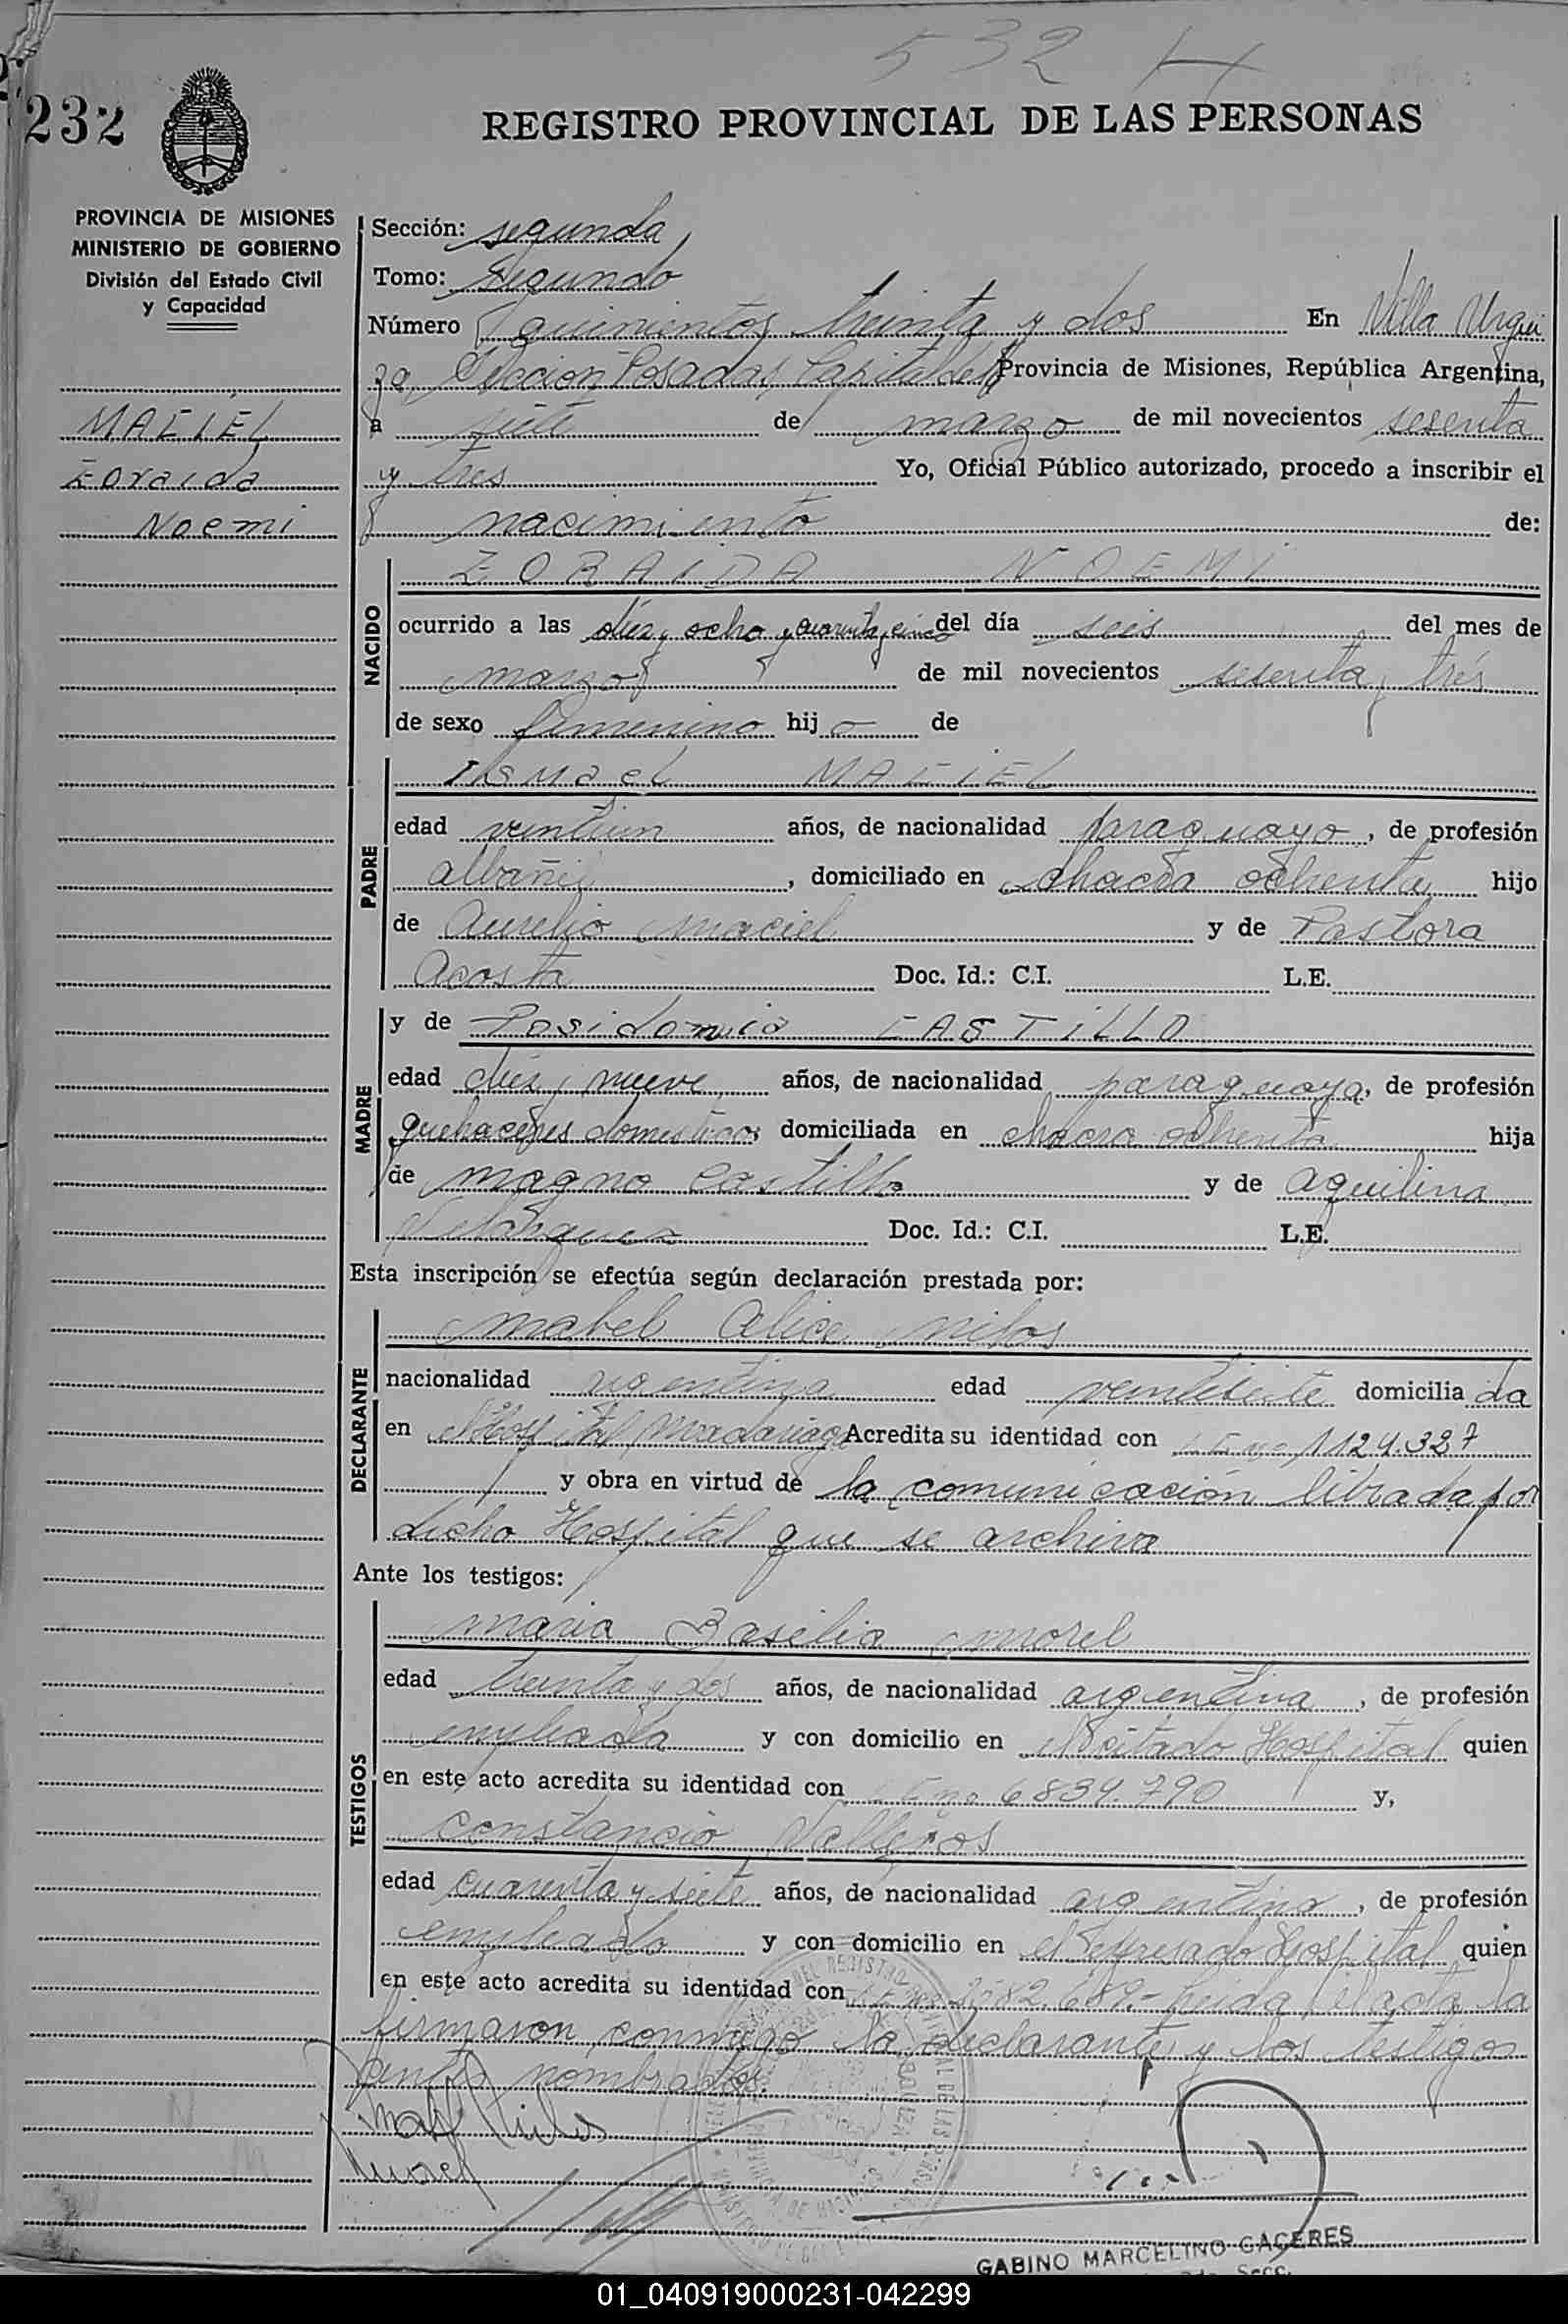 532 H
232
REGISTRO PROVINCIAL DE LAS PERSONAS
PROVINCIA DE MISIONES
MINISTERIO DE GOBIERNO
División del Estado Civil
y Capacidad
MACIEL
Zoraida
Noemi
Sección: segunda
Tomo: Segundo
Número quinientos treinta y dos En Villa Urqui
za, Sección Posadas, Capital de la Provincia de Misiones, República Argentina,
a siete de marzo de mil novecientos sesenta
y tres Yo, Oficial Público autorizado, procedo a inscribir el
nacimiento de:
NACIDO
ZORAIDA NOEMI
ocurrido a las diez y ocho y cuarenta y cinco del día seis del mes de
marzo de mil novecientos sesenta y trés
de sexo femenino hij a de
PADRE
Ismael MACIEL
edad veintiun años, de nacionalidad paraguayo, de profesión
albañil, domiciliado en chacra ochenta hijo
de Aurelio Maciel y de Pastora
Acosta Doc. Id.: C.I. L.E.
MADRE
y de Posidonia CASTILLO
edad diez y nueve años, de nacionalidad paraguaya, de profesión
quehaceres domesticos domiciliada en chacra ochenta hija
de Magno Castillo y de Aquilina
Doc. Id.: C.I. L.E.
Esta inscripción se efectúa según declaración prestada por:
DECLARANTE
Mabel Alice Milos
nacionalidad argentina edad veintisiete domicilia da
en el Hospital Madariaga Acredita su identidad con 1.124.387
y obra en virtud de la comunicación librada por
dicho Hospital que se archiva
Ante los testigos:
TESTIGOS
Maria Basilia Morel
edad treinta y dos años, de nacionalidad argentina, de profesión
empleada y con domicilio en el citado Hospital quien
en este acto acredita su identidad con 6.839.790 y,
Constancio Vallejos
edad cuarenta y siete años, de nacionalidad argentino, de profesión
empleado y con domicilio en el expresado Hospital quien
en este acto acredita su identidad con 2582.689.- Leida el acta la
firmaron conmigo la declarante y los testigos
nombrados.
GABINO MARCELINO CACERES
01_040919000231-042299